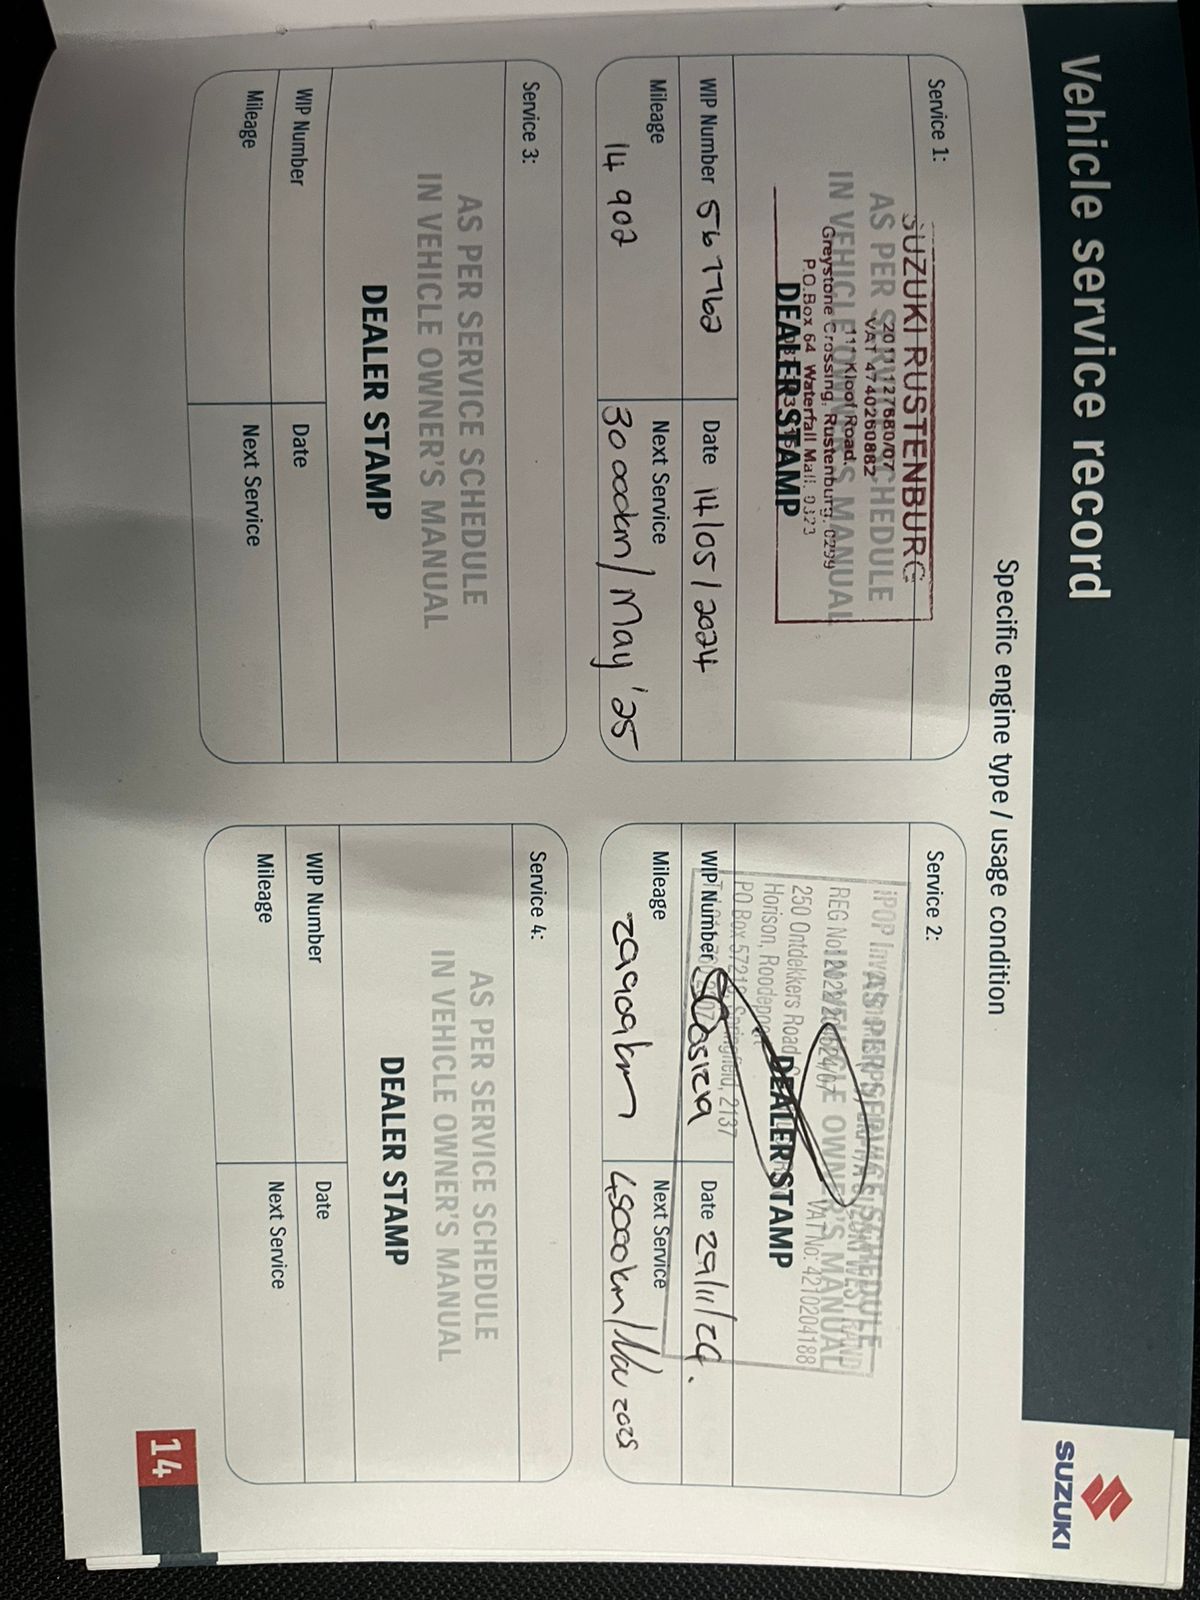 Vehicle service record
SUZUKI
Specific engine type / usage condition
Service 1:
AS PER SERVICE SCHEDULE
IN VEHICLE OWNER'S MANUAL
DEALER STAMP
SUZUKI RUSTENBURG
2011/127680/07
VAT 4740260882
111 Kloof Road.
Greystone Crossing, Rustenburg. 0299
P.O.Box 64 Waterfall Mall. 0323
WIP Number 567762
Date 14/05/2024
Mileage
14 902
Next Service
30 000km/May '25
Service 2:
AS PER SERVICE SCHEDULE
IN VEHICLE OWNER'S MANUAL
DEALER STAMP
250 Ontdekkers Road
Horison, Roodepoort
VAT No: 4210204188
Springfield, 2137
WIP Number
Date 29/11/24.
Mileage
29909km
Next Service
45000km/Nov 2025
Service 3:
AS PER SERVICE SCHEDULE
IN VEHICLE OWNER'S MANUAL
DEALER STAMP
WIP Number
Date
Mileage
Next Service
Service 4:
AS PER SERVICE SCHEDULE
IN VEHICLE OWNER'S MANUAL
DEALER STAMP
WIP Number
Date
Mileage
Next Service
14